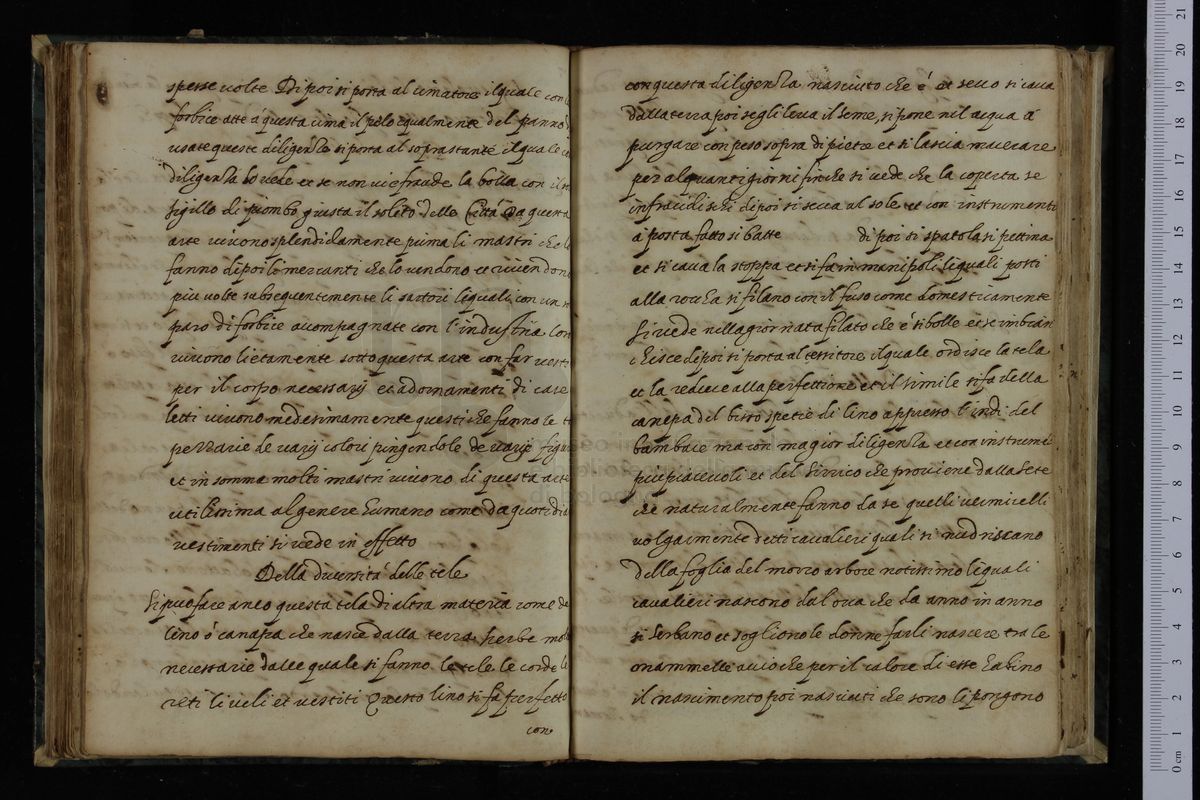 spesse uolte Di poi si porta al cimatore il quale con le
forbice atte á questa cima il pelo equalmente del panno
usate queste diligenze si porta al soprastante il quale
diligenza lo uede et se non vi é fraude la bolla con il
sigillo di piombo giusta il solito delle Cittá Da questa
arte viuono splendidamente prima li mastri che lo
fanno di poi li mercanti che lo uendono et riuendono
piu uolte subsequentemente li sartori li quali con un
paro di forbice accompagnate con l'industria
viuono lietamente sotto questa arte con far uesti
per il corpo necessarij et adornamenti di case
letti viuono medesimamente questi che fanno le
pezzarie de uarij colori pingendole de uarij figu
et in somma molti mastri viuono di questa arte
utilissima al genere humano come da quotidia
uestimenti si uede in effetto
Della diuersitá delle tele
Si puo fare anco questa tela di altra materia come de
lino ó canapa che nasce dalla terra herbe mol
necessarie dalle quale si fanno le tele le corde le
reti li ueli et uestiti Questo lino si fa perfetto
con
con questa diligenza nasciuto che é et secco si caua
dalla terra poi se gli leua il seme, si pone nil acqua á
purgare con peso sopra di pietre et si lascia macerare
per alquanti giorni fin che si uede che la coperta se
infraudischi di poi si secca al sole et con instrumenti
á posta fatto si batte di poi si spatola si pettina
et si caua la stoppa et si fa in manipoli li quali posti
alla roccha si filano con il fuso come domesticamente
si uede nella giornata filato che é si bolle et se imbian
chisce di poi si porta al tessitore il quale ordisce la tela
et la reduce alla perfettione et il simile si fa della
canepa del bisso spetie di lino appresso l'indi del
bambace ma con magior diligenza et con instrume
piu piaceuoli et del sirrico che prouiene dalla sete
che naturalmente fanno da se quelli uermicelli
uolgarmente detti caualieri quali si nudriscano
della foglia del morro arbore notissimo li quali
caualieri nascono dal oua che da anno in anno
si serbano et sogliono le donne farli nascere tra le
mammelle accio che per il calore di esse habino
il nascimento poi nasciuti che sono li pongono